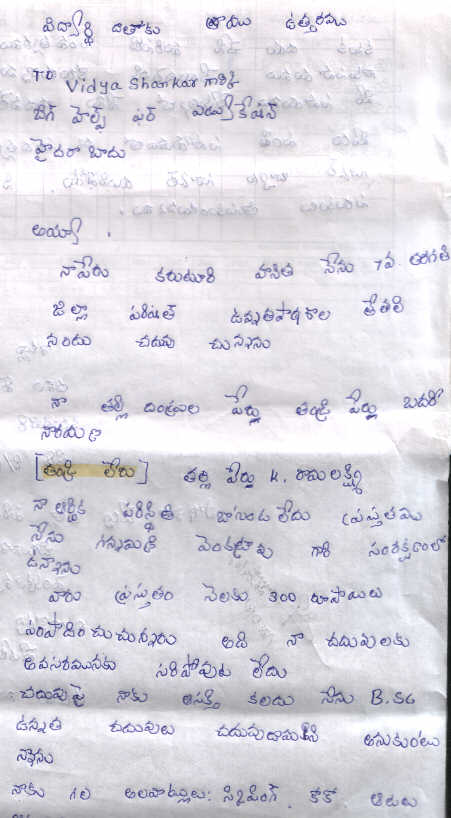 విద్యార్థి దాతకు వ్రాయు ఉత్తరము
To Vidya Shankar గారికి
బిగ్ హెల్ప్ ఫర్ ఎడ్యుకేషన్
హైదరాబాదు
అయ్యా,
నాపేరు కరుటూరి వానిత నేను 7వ. తరగతి
జిల్లా పరిషత్ ఉన్నతపాఠశాల తేతలి
నందు చదువు చున్నాను
నా తల్లి దండ్రుల పేర్లు తండ్రి పేరు బదరి
నారాయణ
[తండ్రి లేరు] తల్లి పేరు K. రామలక్ష్మి
నా ఆర్థిక పరిస్థితి బాగుండ లేదు ప్రస్తుతము
నేను వెంకట్రావు గారి సంరక్షణలో
ఉన్నాను
వారు ప్రస్తుతం నెలకు 300 రూపాయిలు
సంపాదించుచున్నారు అది నా చదువులకు
అవసరమునకు సరిపోవుట లేదు
చదువుపై నాకు ఆసక్తి కలదు నేను B.Sc
ఉన్నత చదువులు చదువుదామని అనుకుంటు
న్నాను
నాకు గల అలవాట్లులు: స్కిప్పింగ్, కోకో ఆటలు